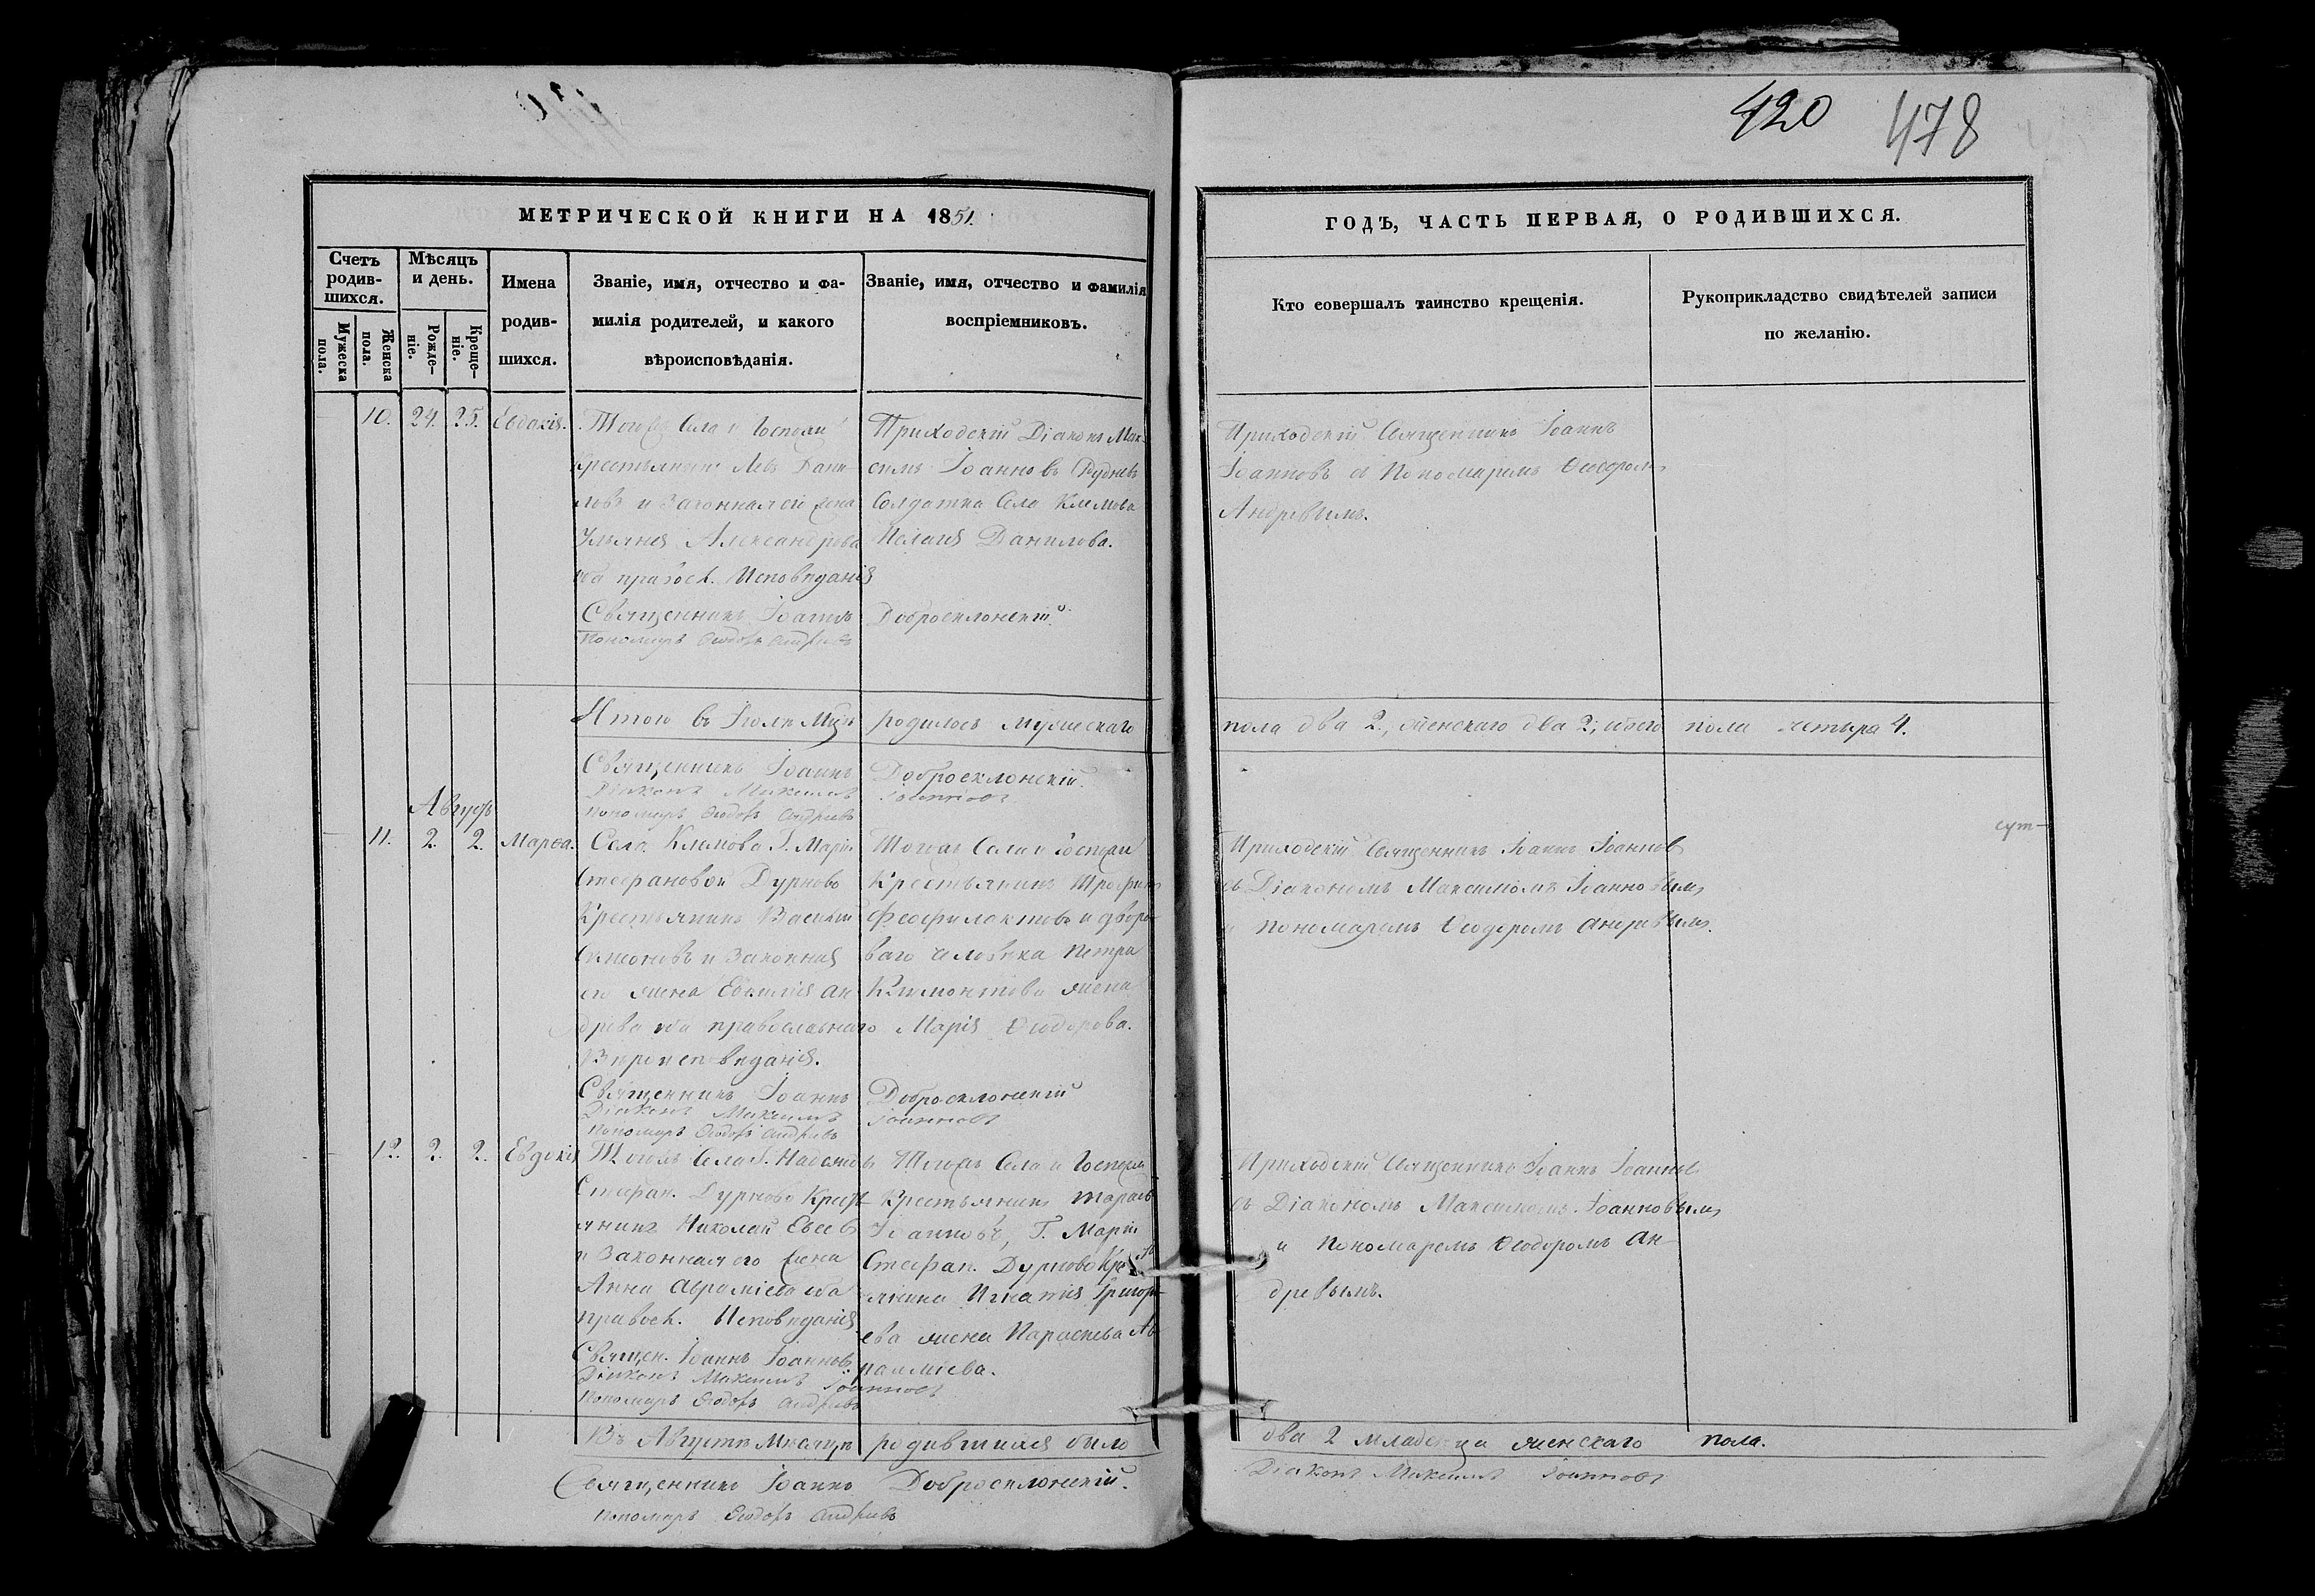 420 478
МЕТРИЧЕСКОЙ КНИГИ НА 1851.
ГОДЪ, ЧАСТЬ ПЕРВАЯ, О РОДИВШИХСЯ.
Счетъ родив-шихся.
Мужеска пола.
Женска пола.
Мѣсяцъ и день.
Рожде-ніе.
Креще-ніе.
Имена
родив-
шихся.
Званіе, имя, отчество и фа-
милія родителей, и какого
вѣроисповѣданія.
Званіе, имя, отчество и фамилія
воспріемниковъ.
Кто совершалъ таинство крещенія.
Рукоприкладство свидѣтелей записи
по желанію.
10. 24. 25. Евдокія.
Тогожъ Села и Госпожи
Крестьянинъ Левъ Дани
ловъ и Законная его жена
Ульяна Александрова
оба правосл. Исповѣданія
Священникъ Іоаннъ Добросклонскій
Пономарь Ѳеодоръ Андреевъ
Приходскій Діаконъ Мак
симъ Іоанновъ Рудневъ
Солдатка Села Климова
Пелагія Данилова.
Приходскій Священникъ Іоаннъ
Іоанновъ съ Пономаремъ Ѳеодоромъ
Андреевымъ.
Итого въ Іюлѣ Мцѣ родилось мужескаго пола два 2., женскаго два 2; обоего пола четыре 4.
Священникъ Іоаннъ Добросклонскій.
Діаконъ Максимъ Іоанновъ
Пономарь Ѳеодоръ Андреевъ
Августъ
11. 2. 2. Марѳа.
Села Климова Г. Маріи
Стефановой Дурново
Крестьянинъ Василій
Симеоновъ и Законная
его жена Евфимія Ан
дреева оба православнаго
Вѣроисповѣданія.
Священникъ Іоаннъ Добросклонскій
Діаконъ Максимъ Іоанновъ
Пономарь Ѳеодоръ Андреевъ
Тогожъ Села и Госпожи
Крестьянинъ Трофимъ
Феофилактовъ и дворо-
ваго человѣка Петра
Климонтова жена
Марія Ѳеодорова.
Приходскій Священникъ Іоаннъ Іоанновъ
съ Діакономъ Максимомъ Іоанновымъ
и пономаремъ Ѳеодоромъ Андреевымъ.
12. 2. 2. Евдокія
Тогожъ Села Г.
Стефан. Дурново Крест
янинъ Николай Евсеев
и Законная его жена
Анна Аврамиева оба
правосл. Исповѣданія
Священ. Іоаннъ Іоанновъ
Діаконъ Максимъ Іоанновъ
Пономарь Ѳеодоръ Андреевъ
Тогожъ Села и Госпожи
Крестьянинъ Тарасъ
Іоанновъ, Г. Маріи
Стефан. Дурново Кре
янина Игнатія Григорь-
ева жена Параскева
Приходскій Священникъ Іоаннъ Іоанновъ
съ Діакономъ Максимомъ Іоанновымъ
и Пономаремъ Ѳеодоромъ Ан-
древымъ.
Въ Августѣ Месяцѣ родившихся было два 2 младенца женскаго пола.
Священникъ Іоаннъ Добросклонскій.
Діаконъ Максимъ Іоанновъ
Пономарь Ѳеодоръ Андреевъ